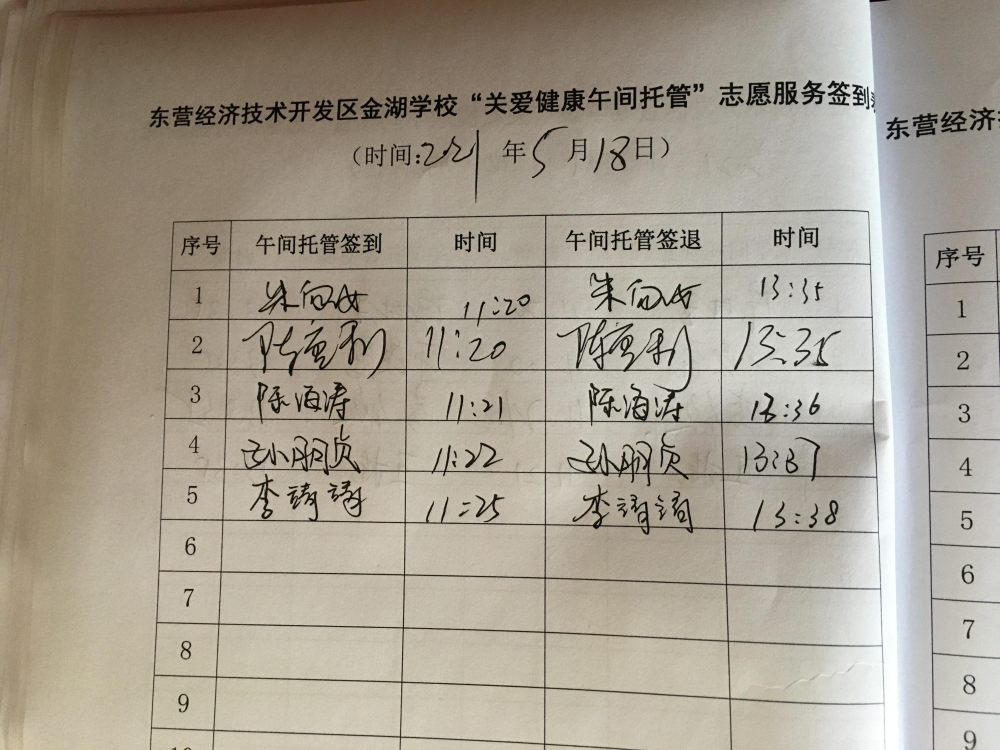 东营经济技术开发区金湖学校“关爱健康午间托管”志愿服务签到
（时间:221年5月18日）
序号 午间托管签到 时间 午间托管签退 时间
1 朱向女 11:20 朱向女 13:35
2 11:20 13:35
3 陈海涛 11:21 陈海涛 13:36
4 孙朋贞 11:22 孙朋贞 13:37
5 李靖靖 11:25 李靖靖 13:38
6
7
8
9
10
东营经济
序号
1
2
3
4
5
6
7
8
9